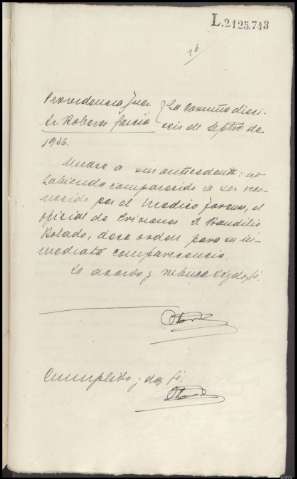 L.2125.743
Providencia Juez
Sr Roberes García
La Coruña diez
seis de Septbre de
1936.
Únase a sus antecedentes; no
habiendo comparecido a ser reco
nocido por el Médico forense, el
oficial de Prisiones D. Baudilio
dese orden para su in
mediata comparecencia.
Lo acordó y rubrica S.S. doy fe
Cumplido; doy fe